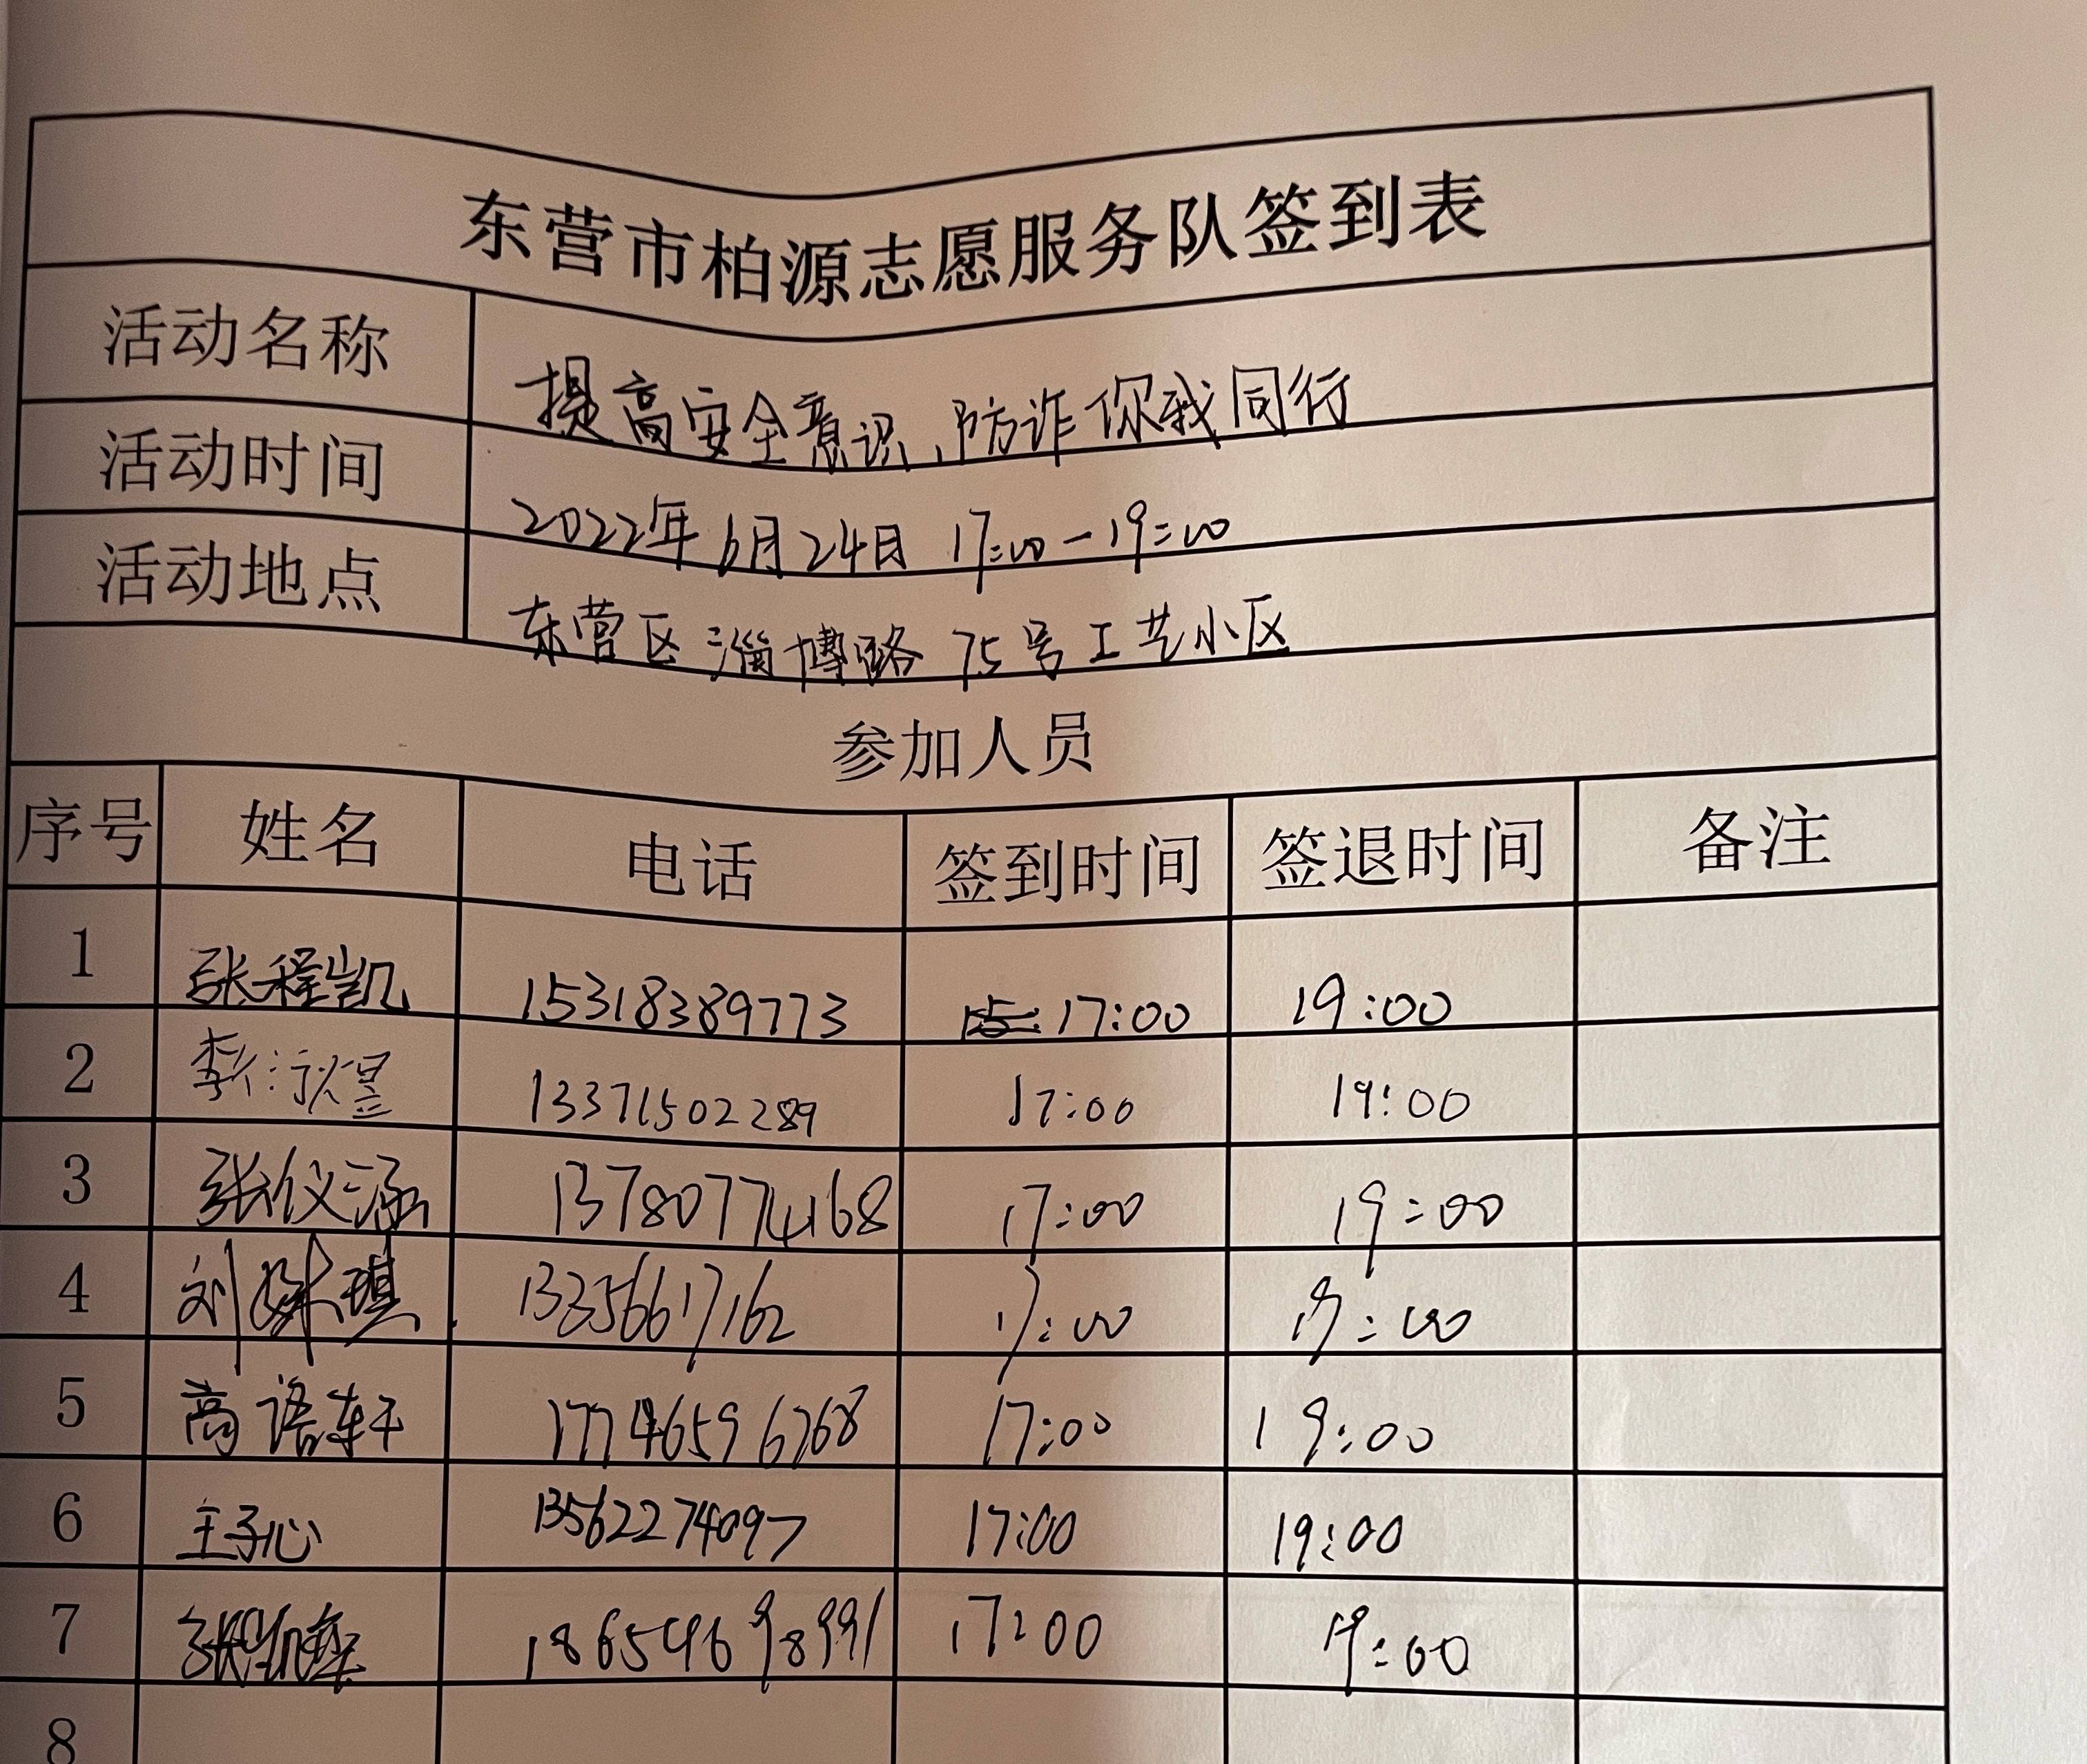 东营市柏源志愿服务队签到表
活动名称 提高安全意识，防诈你我同行
活动时间 2022年6月24日 17:00-19:00
活动地点 东营区淄博路75号工艺小区
参加人员
序号 姓名 电话 签到时间 签退时间 备注
1 张程凯 15318389773 17:00 19:00
2 13371502289 17:00 19:00
3 张仪涵 13780774168 17:00 19:00
4 刘姝琪 13356617162 17:00 19:00
5 高语轩 17746596768 17:00 19:00
6 王子心 13562274097 17:00 19:00
7 17:00 19:00
8